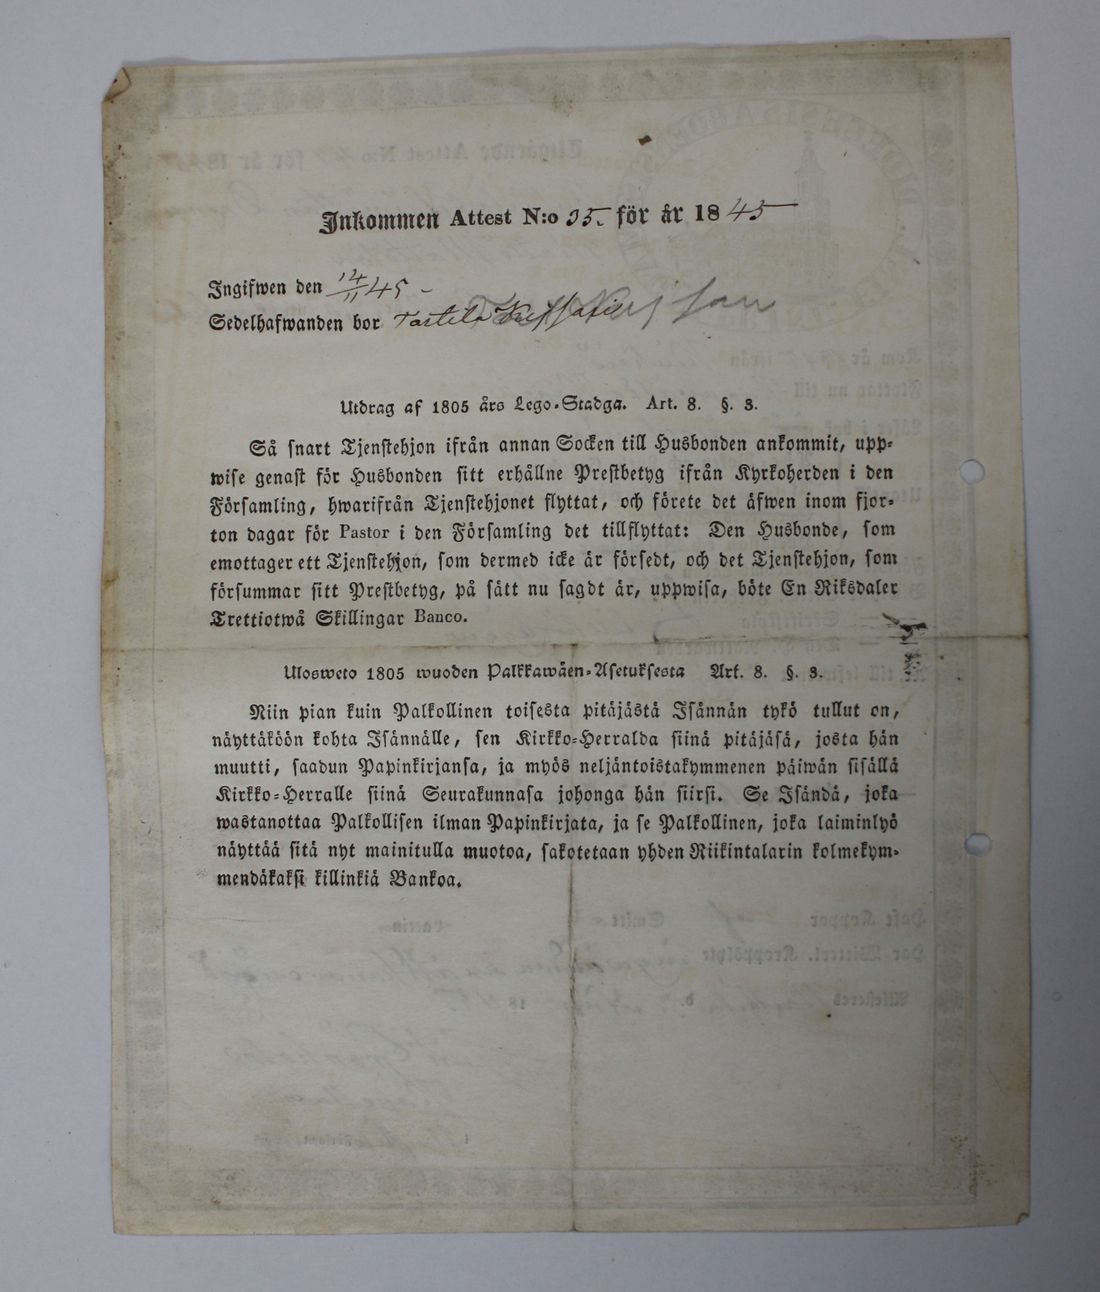 Inkommen Attest N:o 35. för år 1845
Ingifwen den 14/11 45 -
Sedelhafwanden bor
Utdrag af 1805 års Lego-Stadga. Art. 8. §. 3.
Så snart Tjenstehjon ifrån annan Socken till Husbonden ankommit, upp-
wise genast för Husbonden sitt erhållne Prestbetyg ifrån Kyrkoherden i den
Församling, hwarifrån Tjenstehjonet flyttat, och förete det äfwen inom fjor-
ton dagar för Pastor i den Församling det tillflyttat: Den Husbonde, som
emottager ett Tjenstehjon, som dermed icke är försedt, och det Tjenstehjon, som
försummar sitt Prestbetyg, på sätt nu sagdt är, uppwisa, böte En Riksdaler
Trettiotwå Skillingar Banco.
Ulosweto 1805 wuoden Palkkawäen-Asetuksesta Art. 8. §. 3.
Niin pian kuin Palkollinen toisesta pitäjästä Isännän tykö tullut on,
näyttäköön kohta Isännälle, sen Kirkko-Herralda siinä pitäjäsä, josta hän
muutti, saadun Papinkirjansa, ja myös neljäntoistakymmenen päiwän sisällä
Kirkko-Herralle siinä Seurakunnasa johonga hän siirsi. Se Isändä, joka
wastanottaa Palkollisen ilman Papinkirjata, ja se Palkollinen, joka laiminlyö
näyttää sitä nyt mainitulla muotoa, sakotetaan yhden Riikintalarin kolmekym-
mendäkaksi killinkiä Bankoa.